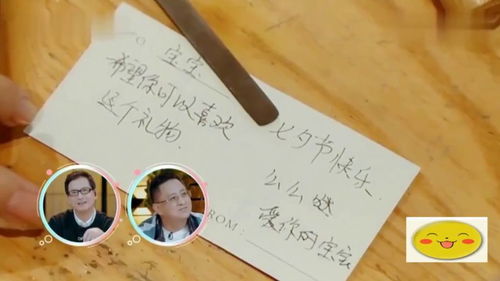 TO 宝宝
希望你可以喜欢
这个礼物.
七夕节快乐.
么么哒
爱你的宝宝
FROM: